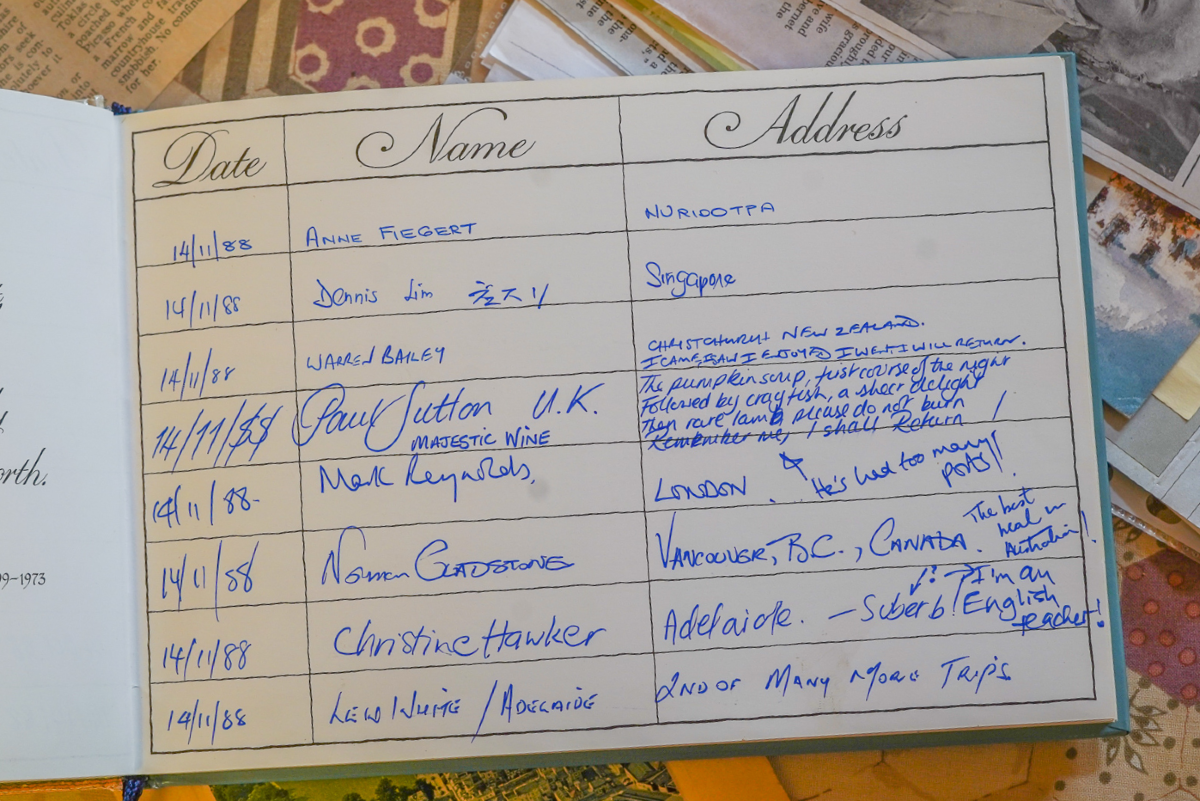 Date Name Address
14/11/88 ANNE FIEGERT NURIOOTPA
14/11/88 Dennis Lim Singapore
14/11/88 WARREN BAILEY CHRISTCHURCH NEW ZEALAND.
I CAME, I SAW I ENJOYED I WENT, I WILL RETURN.
14/11/88 Paul Sutton U.K.
MAJESTIC WINE
The pumpkin soup, first course of the night
Followed by crayfish, a sheer delight
Then rare lamb please do not burn
Remember me, I shall Return !
14/11/88- Mark Reynolds, LONDON .
He's had too many
ports!!
14/11/88 Norman GLADSTONE VANCOUVER, B.C., CANADA.
The best
meal in
Australia!
14/11/88 Christine Hawker Adelaide. – Suberb!
I'm an
English
teacher!
14/11/88 LEW WHITE / ADELAIDE 2ND OF MANY MORE TRIPS
orth.
99-1973